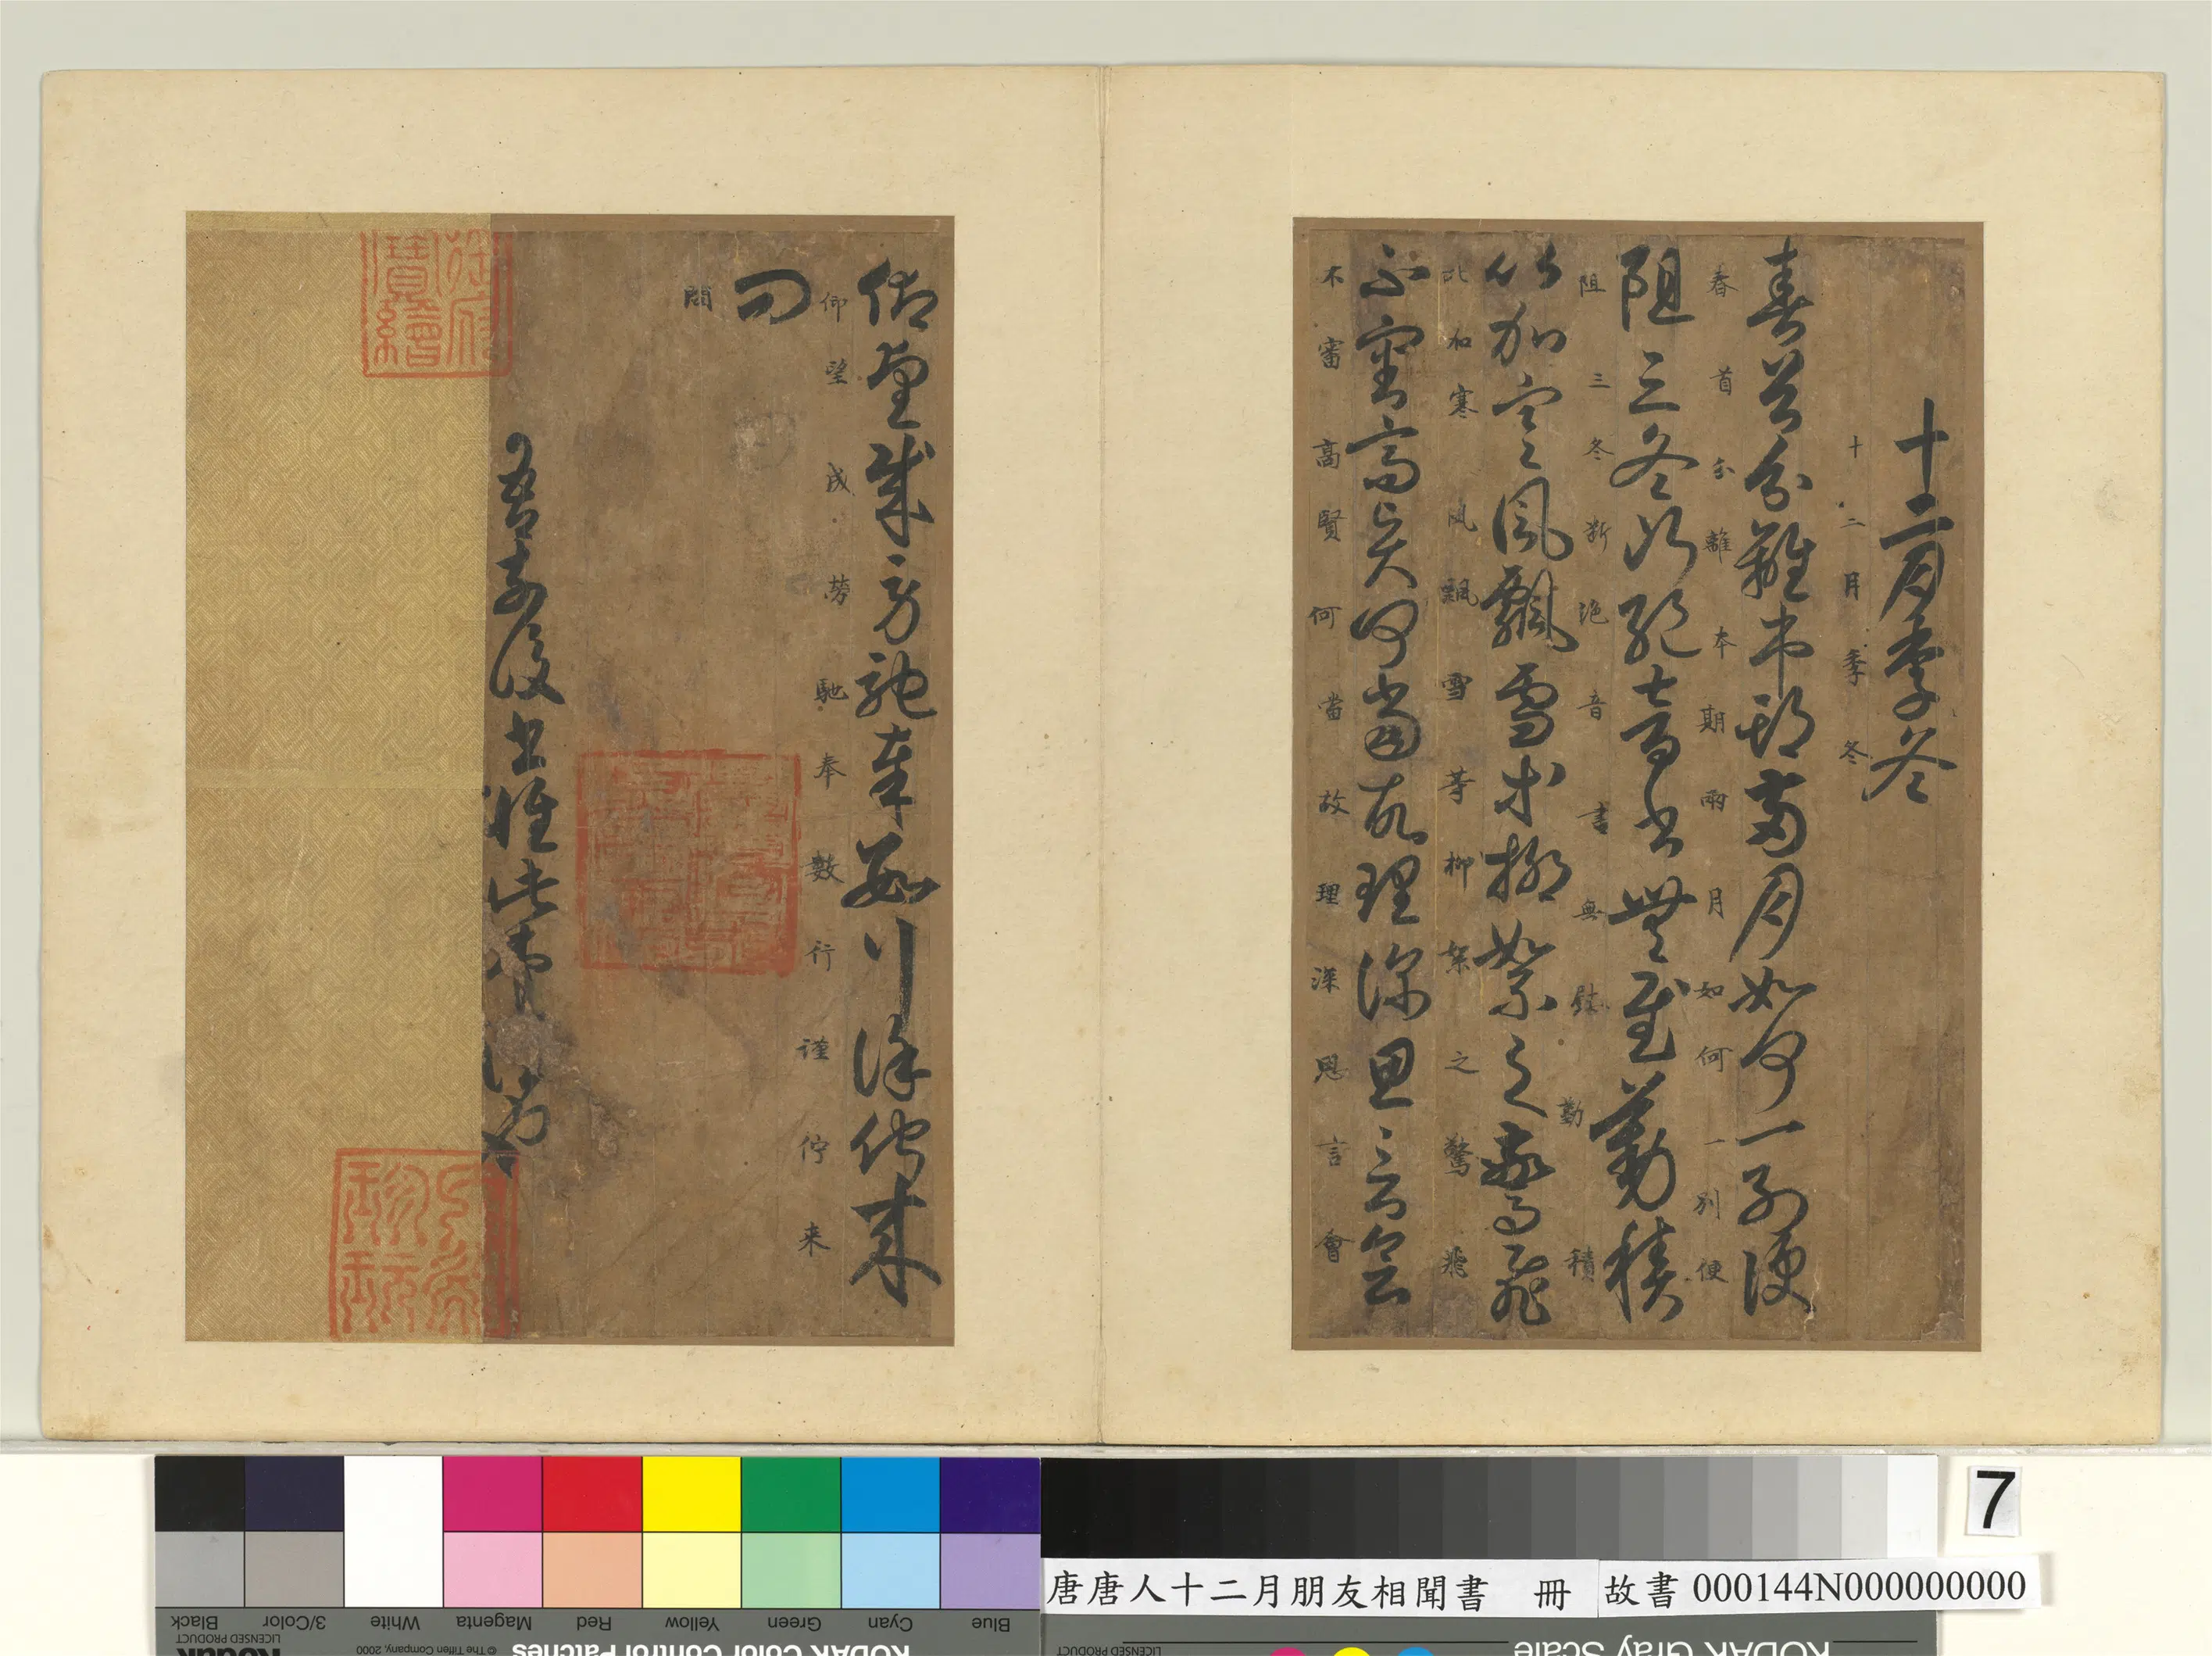 十二月季冬
十二月季冬
春首分離本期兩月如何一別便
春首分離本期兩月如何一別便
阻三冬斷絕音書無慰勤積
阻三冬斷絕音書無慰勤積
比加寒風飄雪等柳絮之驚飛
比加寒風飄雪等柳絮之驚飛
不審高賢何當故理深思言會
不審高賢何當故理深思言會
仰望成勞馳奉數行謹佇來
仰望成勞馳奉數行謹佇来
問
問
吾前後書惟此
7
唐唐人十二月朋友相聞書 冊
故書 000144N000000000
Black
3/Color
White
Magenta
Red
Yellow
Green
Cyan
Blue
LICENSED PRODUCT
© The Tiffen Company, 2000
KODAK Color Control Patches
LICENSED PRODUCT
KODAK Gray Scale
Kodak